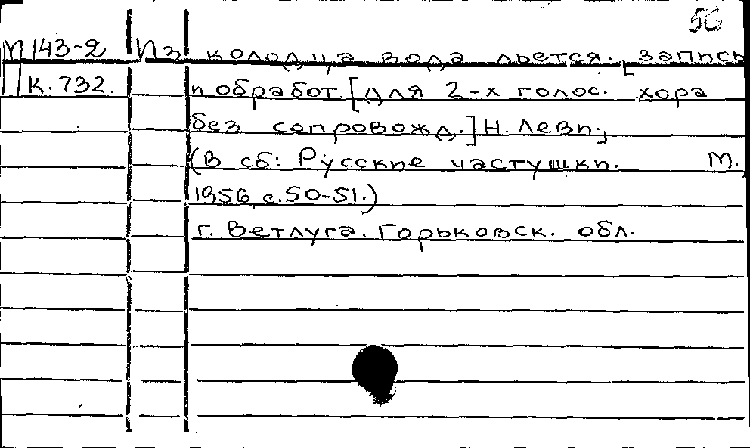 56
М 143-2 Из колодца вода льется. [запись
П к. 732. и обработ. [для 2-х голос. хора
без сопровожд.] Н. Леви,
(В сб: Русские частушки. М.,
1956, с. 50-51.)
г. Ветлуга. Горьковск. обл.